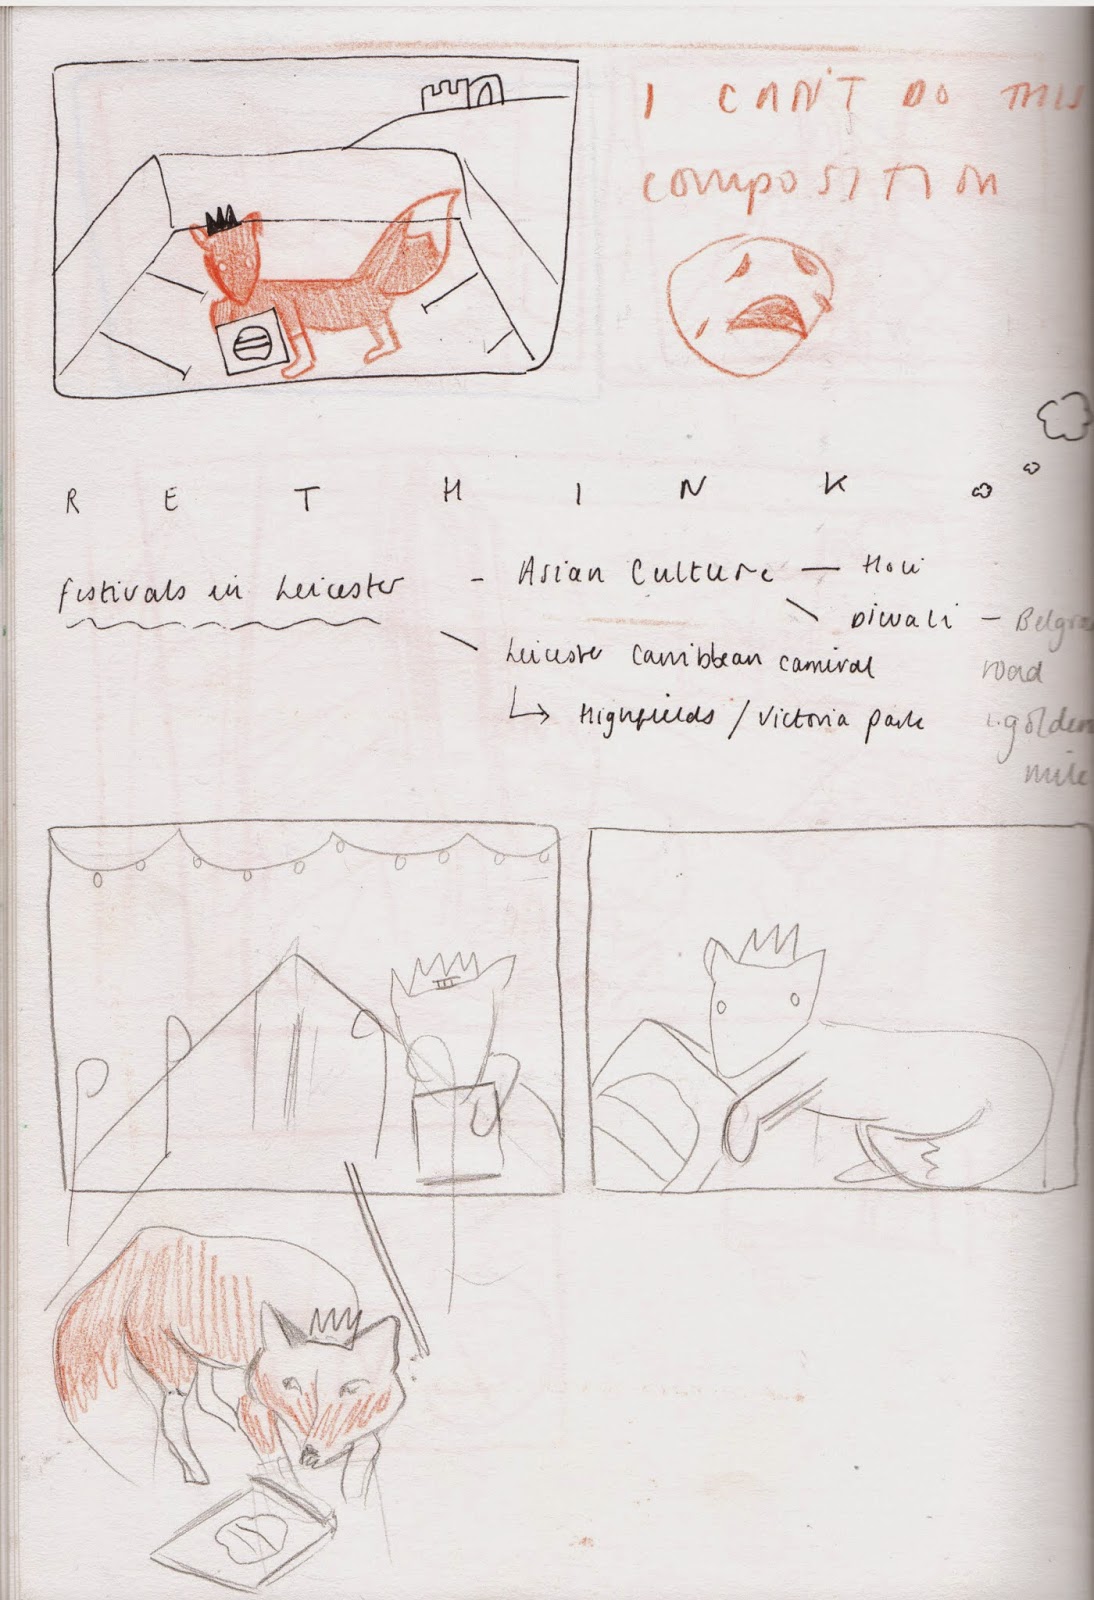 I CAN'T DO THIS
composition
R E T H I N K
festivals in Leicester - Asian Culture — Holi
Diwali - Belgra
Leicester Carribbean carnival road
↳ Highfields / Victoria park golden
mile